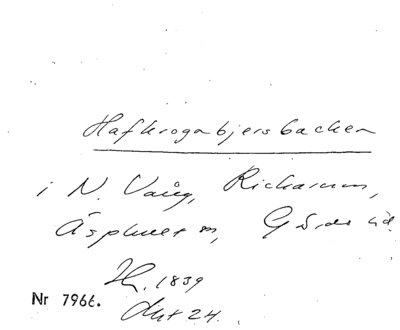 Hafkrogabjersbacken
i N. Vång, Richarum,
Äsphult m, Gärds hd.
Hr. 1839
Akt 24.
Nr 7966.